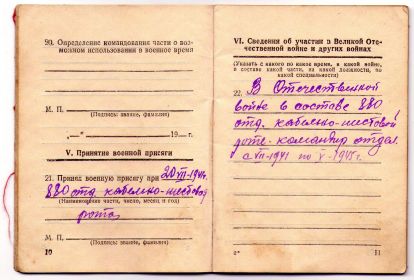 20. Определение командования части о воз-
можном использовании в военное время
М. П.
(Подпись: звание, фамилия)
„—“ 19 — г.
V. Принятие военной присяги
21. Принял военную присягу при 20 VII-1941г.
880 отд. кабельно-шестовой
(Наименование части, число, месяц и год)
рота
М. П.
(Подпись: звание, фамилия)
10
VI. Сведения об участии в Великой Оте-
чественной войне и других войнах
(Указать с какого по какое время, в какой войне,
в составе какой части, на какой должности, по
какой специальности)
22. В Отечественной
войне в составе 880
отд. кабельно-шестовой
роте - командир отдел.
с VII-1941 по V-1945г.
11